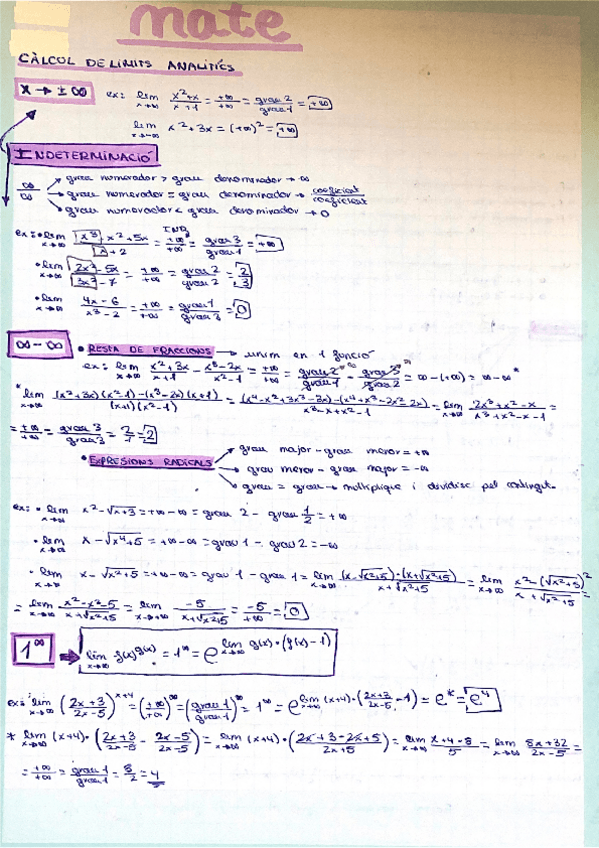 mate
CÀLCUL DE LÍMITS ANALÍTICS
x → ±∞ ex: lim x→∞ x²+x / x+1 = +∞/+∞ = grau 2 / grau 1 = +∞
lim x→-∞ x²+3x = (+∞)² = +∞
INDETERMINACIÓ
∞/∞ → grau numerador > grau denominador → ∞
→ grau numerador = grau denominador → coeficient/coeficient
→ grau numerador < grau denominador → 0
ex: • lim x→∞ x³+x²+5x / x+2 = IND +∞/+∞ = grau 3 / grau 1 = +∞
• lim x→∞ 2x²-5x / 3x²-7 = +∞/+∞ = grau 2 / grau 2 = 2/3
• lim x→∞ 4x-6 / x³-2 = +∞/+∞ = grau 1 / grau 3 = 0
∞-∞ • RESTA DE FRACCIONS → unim en 1 funció
ex: lim x→∞ x²+3x / x+1 - x³-2x / x²-1 = +∞/+∞ = grau 2 / grau 1 - grau 3 / grau 2 = ∞-(+∞) = ∞-∞ *
* lim x→∞ (x²+3x)(x²-1)-(x³-2x)(x+1) / (x+1)(x²-1) = (x⁴-x²+3x³-3x)-(x⁴+x³-2x²-2x) / x³-x+x²-1 = lim x→∞ 2x³+x²-x / x³+x²-x-1 =
= +∞/+∞ = grau 3 / grau 3 = 2/1 = 2
• EXPRESIONS RADICALS → grau major - grau menor = +∞
→ grau menor - grau major = -∞
→ grau = grau → multiplique i dividisc pel contingut.
ex: • lim x→∞ x²-√x+3 = +∞-∞ = grau 2 - grau 1/2 = +∞
• lim x→∞ x-√x⁴+5 = +∞-∞ = grau 1 - grau 2 = -∞
• lim x→∞ x-√x²+5 = +∞-∞ = grau 1 - grau 1 = lim x→∞ (x-√x²+5)·(x+√x²+5) / x+√x²+5 = lim x→∞ x²-(√x²+5)² / x+√x²+5 =
= lim x→∞ x²-x²-5 / x+√x²+5 = lim x→∞ -5 / x+√x²+5 = -5/+∞ = 0
1^∞ → lim x→∞ f(x)^g(x) = 1^∞ = e^lim x→∞ g(x)·(f(x)-1)
ex: • lim x→∞ (2x+3 / 2x-5)^x+4 = (+∞/+∞)^∞ = (grau 1 / grau 1)^∞ = 1^∞ = e^lim x→∞ (x+4)·(2x+3 / 2x-5 - 1) = e^* = e⁴
* lim x→∞ (x+4)·(2x+3 / 2x-5 - 2x-5 / 2x-5) = lim x→∞ (x+4)·(2x+3-2x+5 / 2x+5) = lim x→∞ x+4·8 / 5 = lim x→∞ 8x+32 / 2x-5 =
= +∞/+∞ = grau 1 / grau 1 = 8/2 = 4